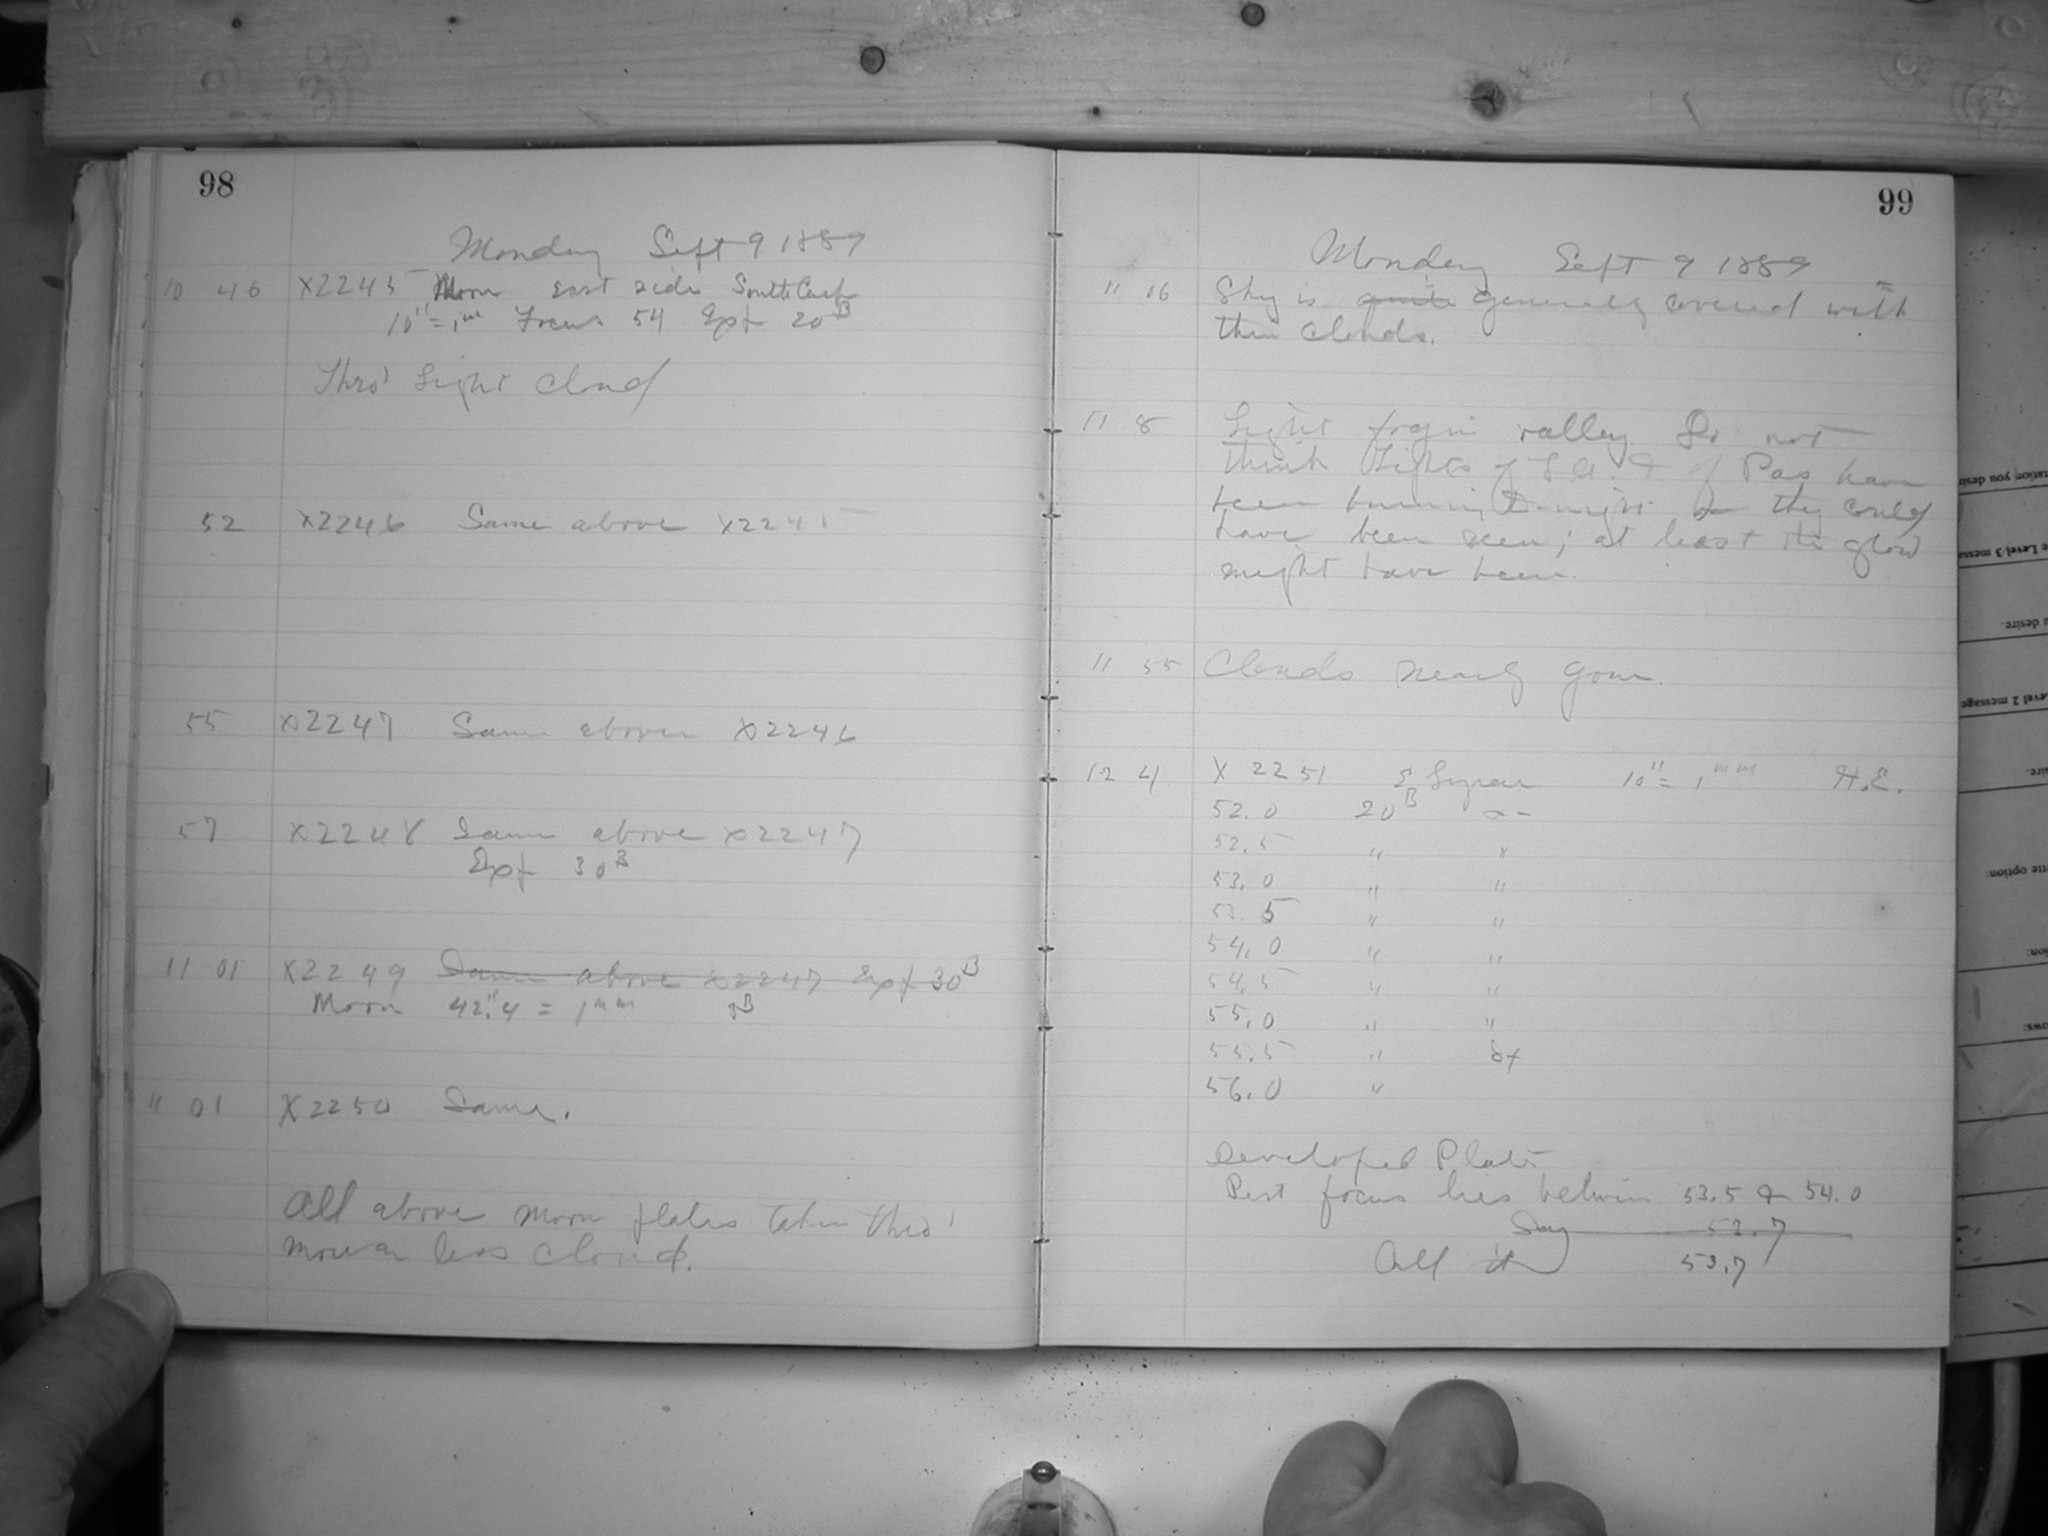 98
Monday Sept 9 1889
10 46 X2245 Moon east side South Cusp
10" = 1m Focus 54 Exp 20B
Thro' Light Cloud
52 X2246 Same above X2245
55 X2247 Same above X2246
57 X2248 Same above X2247
Exp 30B
11 01 X2249 Same above X2247 Exp 30B
Moon 42".4 = 1mm
" 01 X2250 Same.
All above moon plates taken thro'
more or less cloud.
99
Monday Sept 9 1889
11 16 Sky is quite generally covered with
thin clouds.
11 8 Light fog in valley. Do not
think Lights of L.A. & of Pas have
been burning to-night they could
have been seen; at least the glow
might have been.
11 55 Clouds nearly gone.
12 4 X 2251 Lyrae 10" = 1mm H.E.
52.0 20B
52.5 "
53.0 " "
53.5 " "
54.0 " "
54.5 " "
55.0 " "
55.5 "
56.0 "
Developed Plate
Best focus lies between 53.5 & 54.0
Say 53.7
Call it 53.7